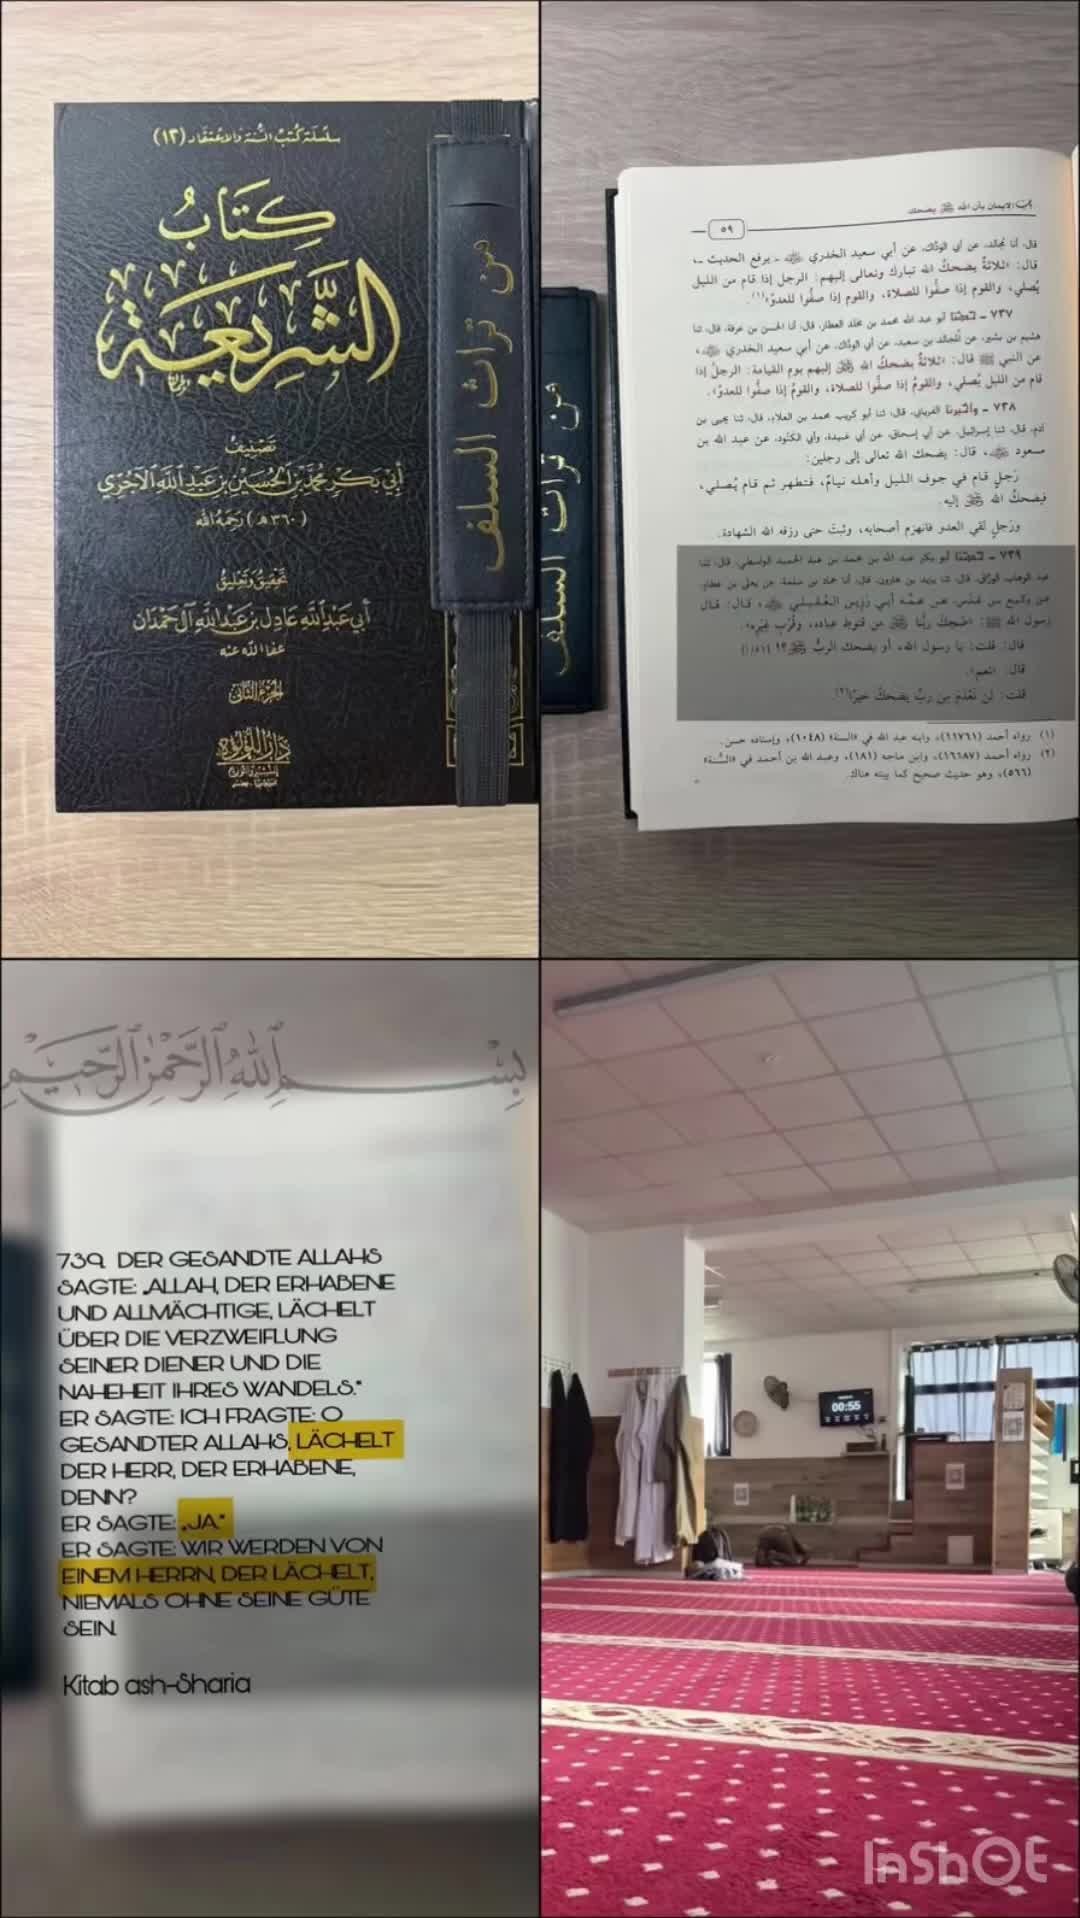 سلسلة كتب السنة والاعتقاد (١٢)
كِتَابُ
الشَّرِيعَة
تصنيف
أبي بكر محمد بن الحسين بن عبد الله الآجري
(٣٦٠هـ) رحمه الله
تحقيق وتعليق
أبي عبد الله عادل بن عبد الله آل حمدان
عفا الله عنه
الجزء الثاني
دار اللؤلؤة
من تراث السلف
من تراث السلف
الإيمان بأن الله يضحك
٥٩
قال: أنا مجالد، عن أبي الودَّاك، عن أبي سعيد الخدري ﷺ - يرفع الحديث -،
قال: «ثلاثةٌ يضحكُ الله تبارك وتعالى إليهم: الرجل إذا قام من الليل
يُصلي، والقوم إذا صفُّوا للصلاة، والقوم إذا صفُّوا للعدوِّ»(١).
٧٣٧ - حدثنا أبو عبد الله محمد بن مخلد العطار، قال: نا الحسن بن عرفة، قال: ثنا
هشيم بن بشير، عن مُجالد بن سعيد، عن أبي الودَّاك، عن أبي سعيد الخدري
عن النبي ﷺ قال: «ثلاثةٌ يضحكُ الله إليهم يوم القيامة: الرجلُ إذا
قام من الليل يُصلي، والقومُ إذا صفُّوا للصلاة، والقومُ إذا صفُّوا للعدوِّ».
٧٣٨ - وأخبرنا الفريابي، قال: ثنا أبو كريب محمد بن العلاء، قال: ثنا يحيى بن
آدم، قال: ثنا إسرائيل، عن أبي إسحاق، عن أبي عبيدة، وأبي الكنُود، عن عبد الله بن
مسعود، قال: يضحك الله تعالى إلى رجلين:
رَجلٍ قام في جوف الليل وأهله نيامٌ، فتطهر ثم قام يُصلي،
فيضحكُ الله إليه.
ورَجلٍ لقي العدو فانهزم أصحابه، وثبتَ حتى رزقه الله الشهادة.
٧٣٩ - حدثنا أبو بكر عبد الله بن محمد بن عبد الحميد الواسطي، قال: ثنا
عبد الوهاب الورَّاق، قال: ثنا يزيد بن هارون، قال: أنا حماد بن سلمة، عن يعلى بن عطاء،
عن وكيع بن عُدس، عن عمِّه أبي رَزِين العُقيلي، قال: قال
رسول الله ﷺ: «ضَحِكَ ربُّنا من قنوط عباده، وقُرْبِ غِيَرِه».
قال: قلت: يا رسول الله، أو يضحك الربُّ؟!
قال: «نعم».
قلت: لن نَعْدَمَ مِن ربٍّ يضحكُ خيرًا(٢).
(١) رواه أحمد (١١٧٦١)، وابنه عبد الله في «السنة» (١٠٤٨)، وإسناده حسن.
(٢) رواه أحمد (١٦١٨٧)، وابن ماجه (١٨١)، وعبد الله بن أحمد في «السُّنة»
(٥٦٦)، وهو حديث صحيح كما بينته هناك.
بِسْمِ اللهِ الرَّحْمٰنِ الرَّحِيْمِ
739. DER GESANDTE ALLAHS
SAGTE: „ALLAH, DER ERHABENE
UND ALLMÄCHTIGE, LÄCHELT
ÜBER DIE VERZWEIFLUNG
SEINER DIENER UND DIE
NAHEHEIT IHRES WANDELS."
ER SAGTE: ICH FRAGTE: O
GESANDTER ALLAHS, LÄCHELT
DER HERR, DER ERHABENE,
DENN?
ER SAGTE: „JA."
ER SAGTE: WIR WERDEN VON
EINEM HERRN, DER LÄCHELT,
NIEMALS OHNE SEINE GÜTE
SEIN.
Kitab ash-Sharia
00:55
InShOt